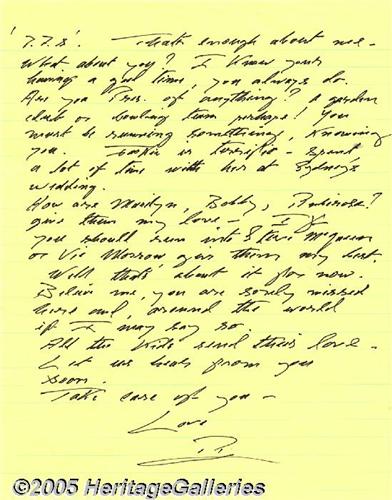 'T.T.S'. That's enough about me -
What about you? I know your
having a good time, you always do.
Are you Pres. of anything? A garden
club or bowling team perhaps! You
must be running something, knowing
you. is terrific - spent
a lot of time with her at Sydney's
wedding.
How are Marilyn, Bobby,
give them my love - If
you should run into Steve McQueen
or Vic Morrow give them my best.
Well that's about it for now.
Believe me, you are sorely missed
here and, around the world
if I may say so.
All the kids send their love -
Let us hear from you
soon.
Take care of you -
Love
©2005 HeritageGalleries